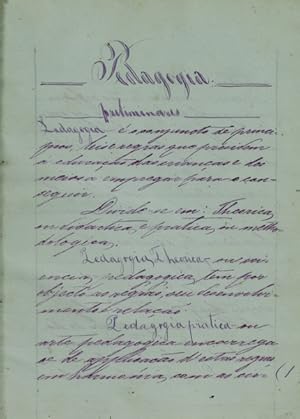 Pedagogia.
preliminares
Pedagogia é o conjunto de princi
pios, leis e regras que presidem
a educação das creanças e dos
meios a empregar para o con-
seguir.
Divide-se em: Theorica,
ou didactica, e pratica, ou metho
dologica.
Pedagogia Theorica ou sci
encia pedagogica, tem por
objecto as regras, seu desenvolvi
mento e relação.
Pedagogia pratica ou
arte pedagogica encarrega
se da applicação d'estas regras
em harmonia, com as